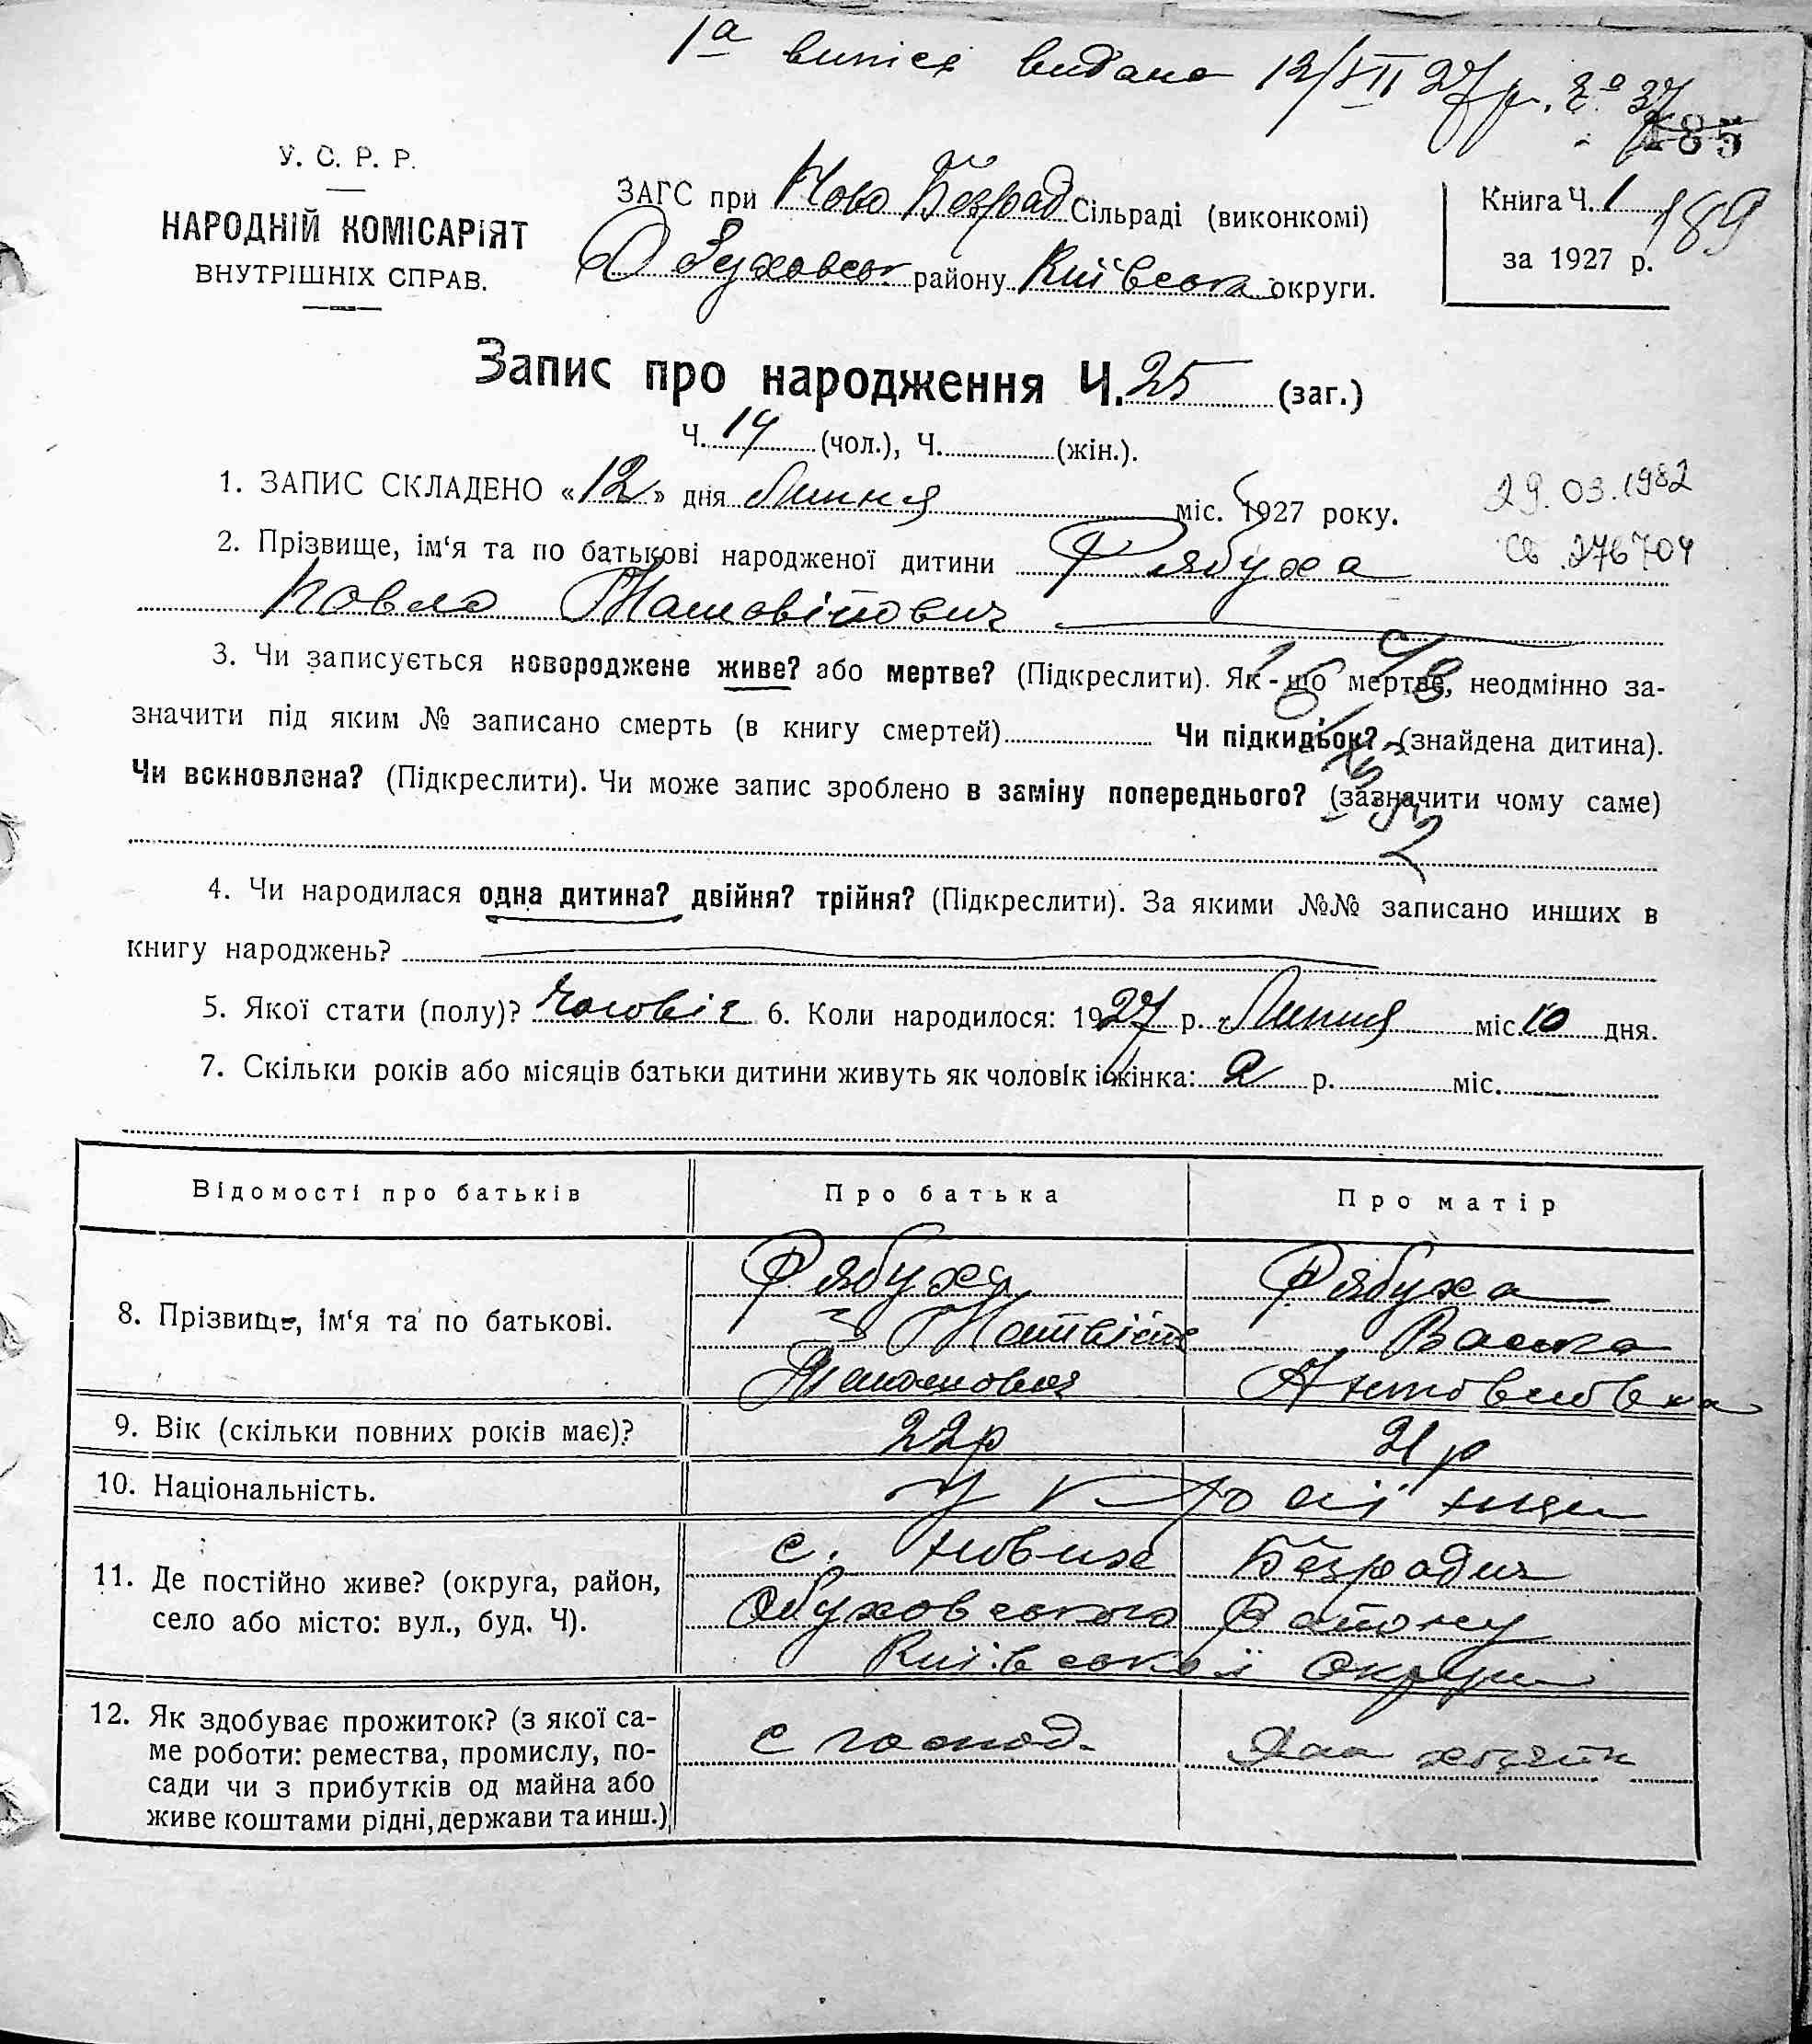 1а випісь видана 12/VII 27 р.
185
У. С. Р. Р.
НАРОДНІЙ КОМІСАРІЯТ
ВНУТРІШНІХ СПРАВ.
ЗАГС при Ново Безрад Сільраді (виконкомі)
Обуховськ району Київська округи.
Книга Ч. 1
189
за 1927 р.
Запис про народження Ч. 25 (заг.)
Ч. 14 (чол.), Ч. (жін.).
1. ЗАПИС СКЛАДЕНО «12» дня Липня міс. 1927 року.
29.03.1982
2. Прізвище, ім‘я та по батькові народженої дитини Рябуха
276704
Павло Матвійович
3. Чи записується новороджене живе? або мертве? (Підкреслити). Як-що мертве, неодмінно за-
значити під яким № записано смерть (в книгу смертей) Чи підкидьок? (знайдена дитина).
Чи всиновлена? (Підкреслити). Чи може запис зроблено в заміну попереднього? (зазначити чому саме)
4. Чи народилася одна дитина? двійня? трійня? (Підкреслити). За якими №№ записано инших в
книгу народжень?
5. Якої стати (полу)? Чоловіч 6. Коли народилося: 1927 р. Липня міс. 10 дня.
7. Скільки років або місяців батьки дитини живуть як чоловік і жінка: 2 р. міс.
Відомості про батьків Про батька Про матір
8. Прізвище, ім‘я та по батькові.
Рябуха Рябуха
Матвій Васка
Антоновна
9. Вік (скільки повних років має)? 22р 21р
10. Національність. Українци
11. Де постійно живе? (округа, район,
село або місто: вул., буд. Ч).
с. Нових Безрадич
Обуховського Району
Київської Округи
12. Як здобуває прожиток? (з якої са-
ме роботи: ремества, промислу, по-
сади чи з прибутків од майна або
живе коштами рідні, держави та инш.)
с господ.